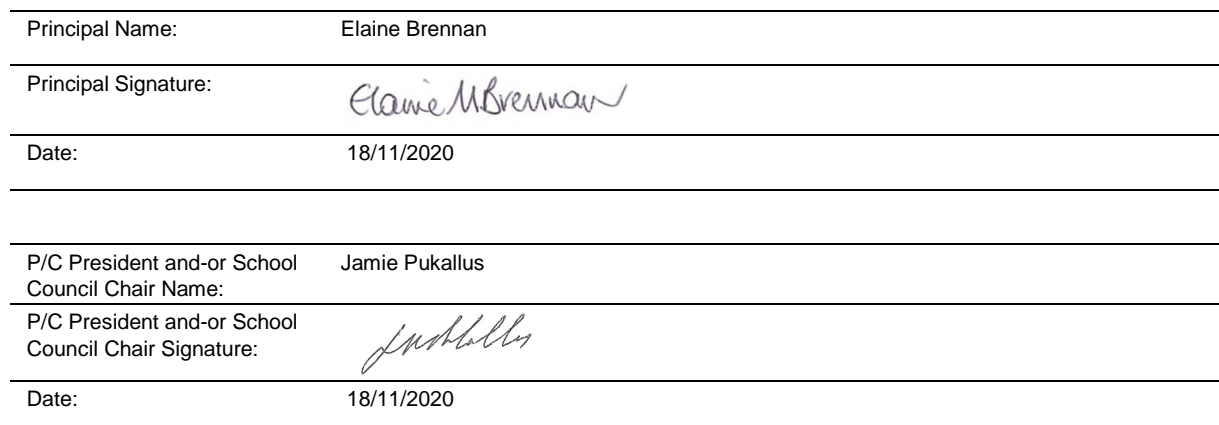 Principal Name: Elaine Brennan
Principal Signature: Elaine M Brennan
Date: 18/11/2020
P/C President and-or School Jamie Pukallus
Council Chair Name:
P/C President and-or School
Council Chair Signature:
Date: 18/11/2020